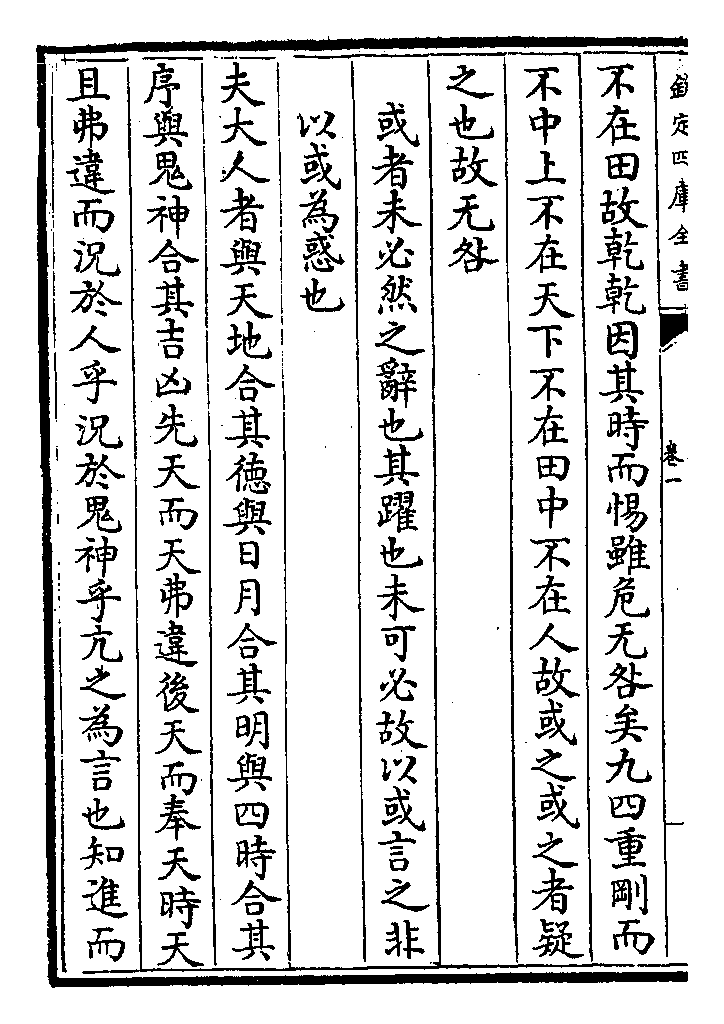 欽定四庫全書
卷一
不在田故乾乾因其時而惕雖危无咎矣九四重剛而
不中上不在天下不在田中不在人故或之或之者疑
之也故无咎
或者未必然之辭也其躍也未可必故以或言之非
以或為惑也
夫大人者與天地合其德與日月合其明與四時合其
序與鬼神合其吉凶先天而天弗違後天而奉天時天
且弗違而況於人乎況於鬼神乎亢之為言也知進而